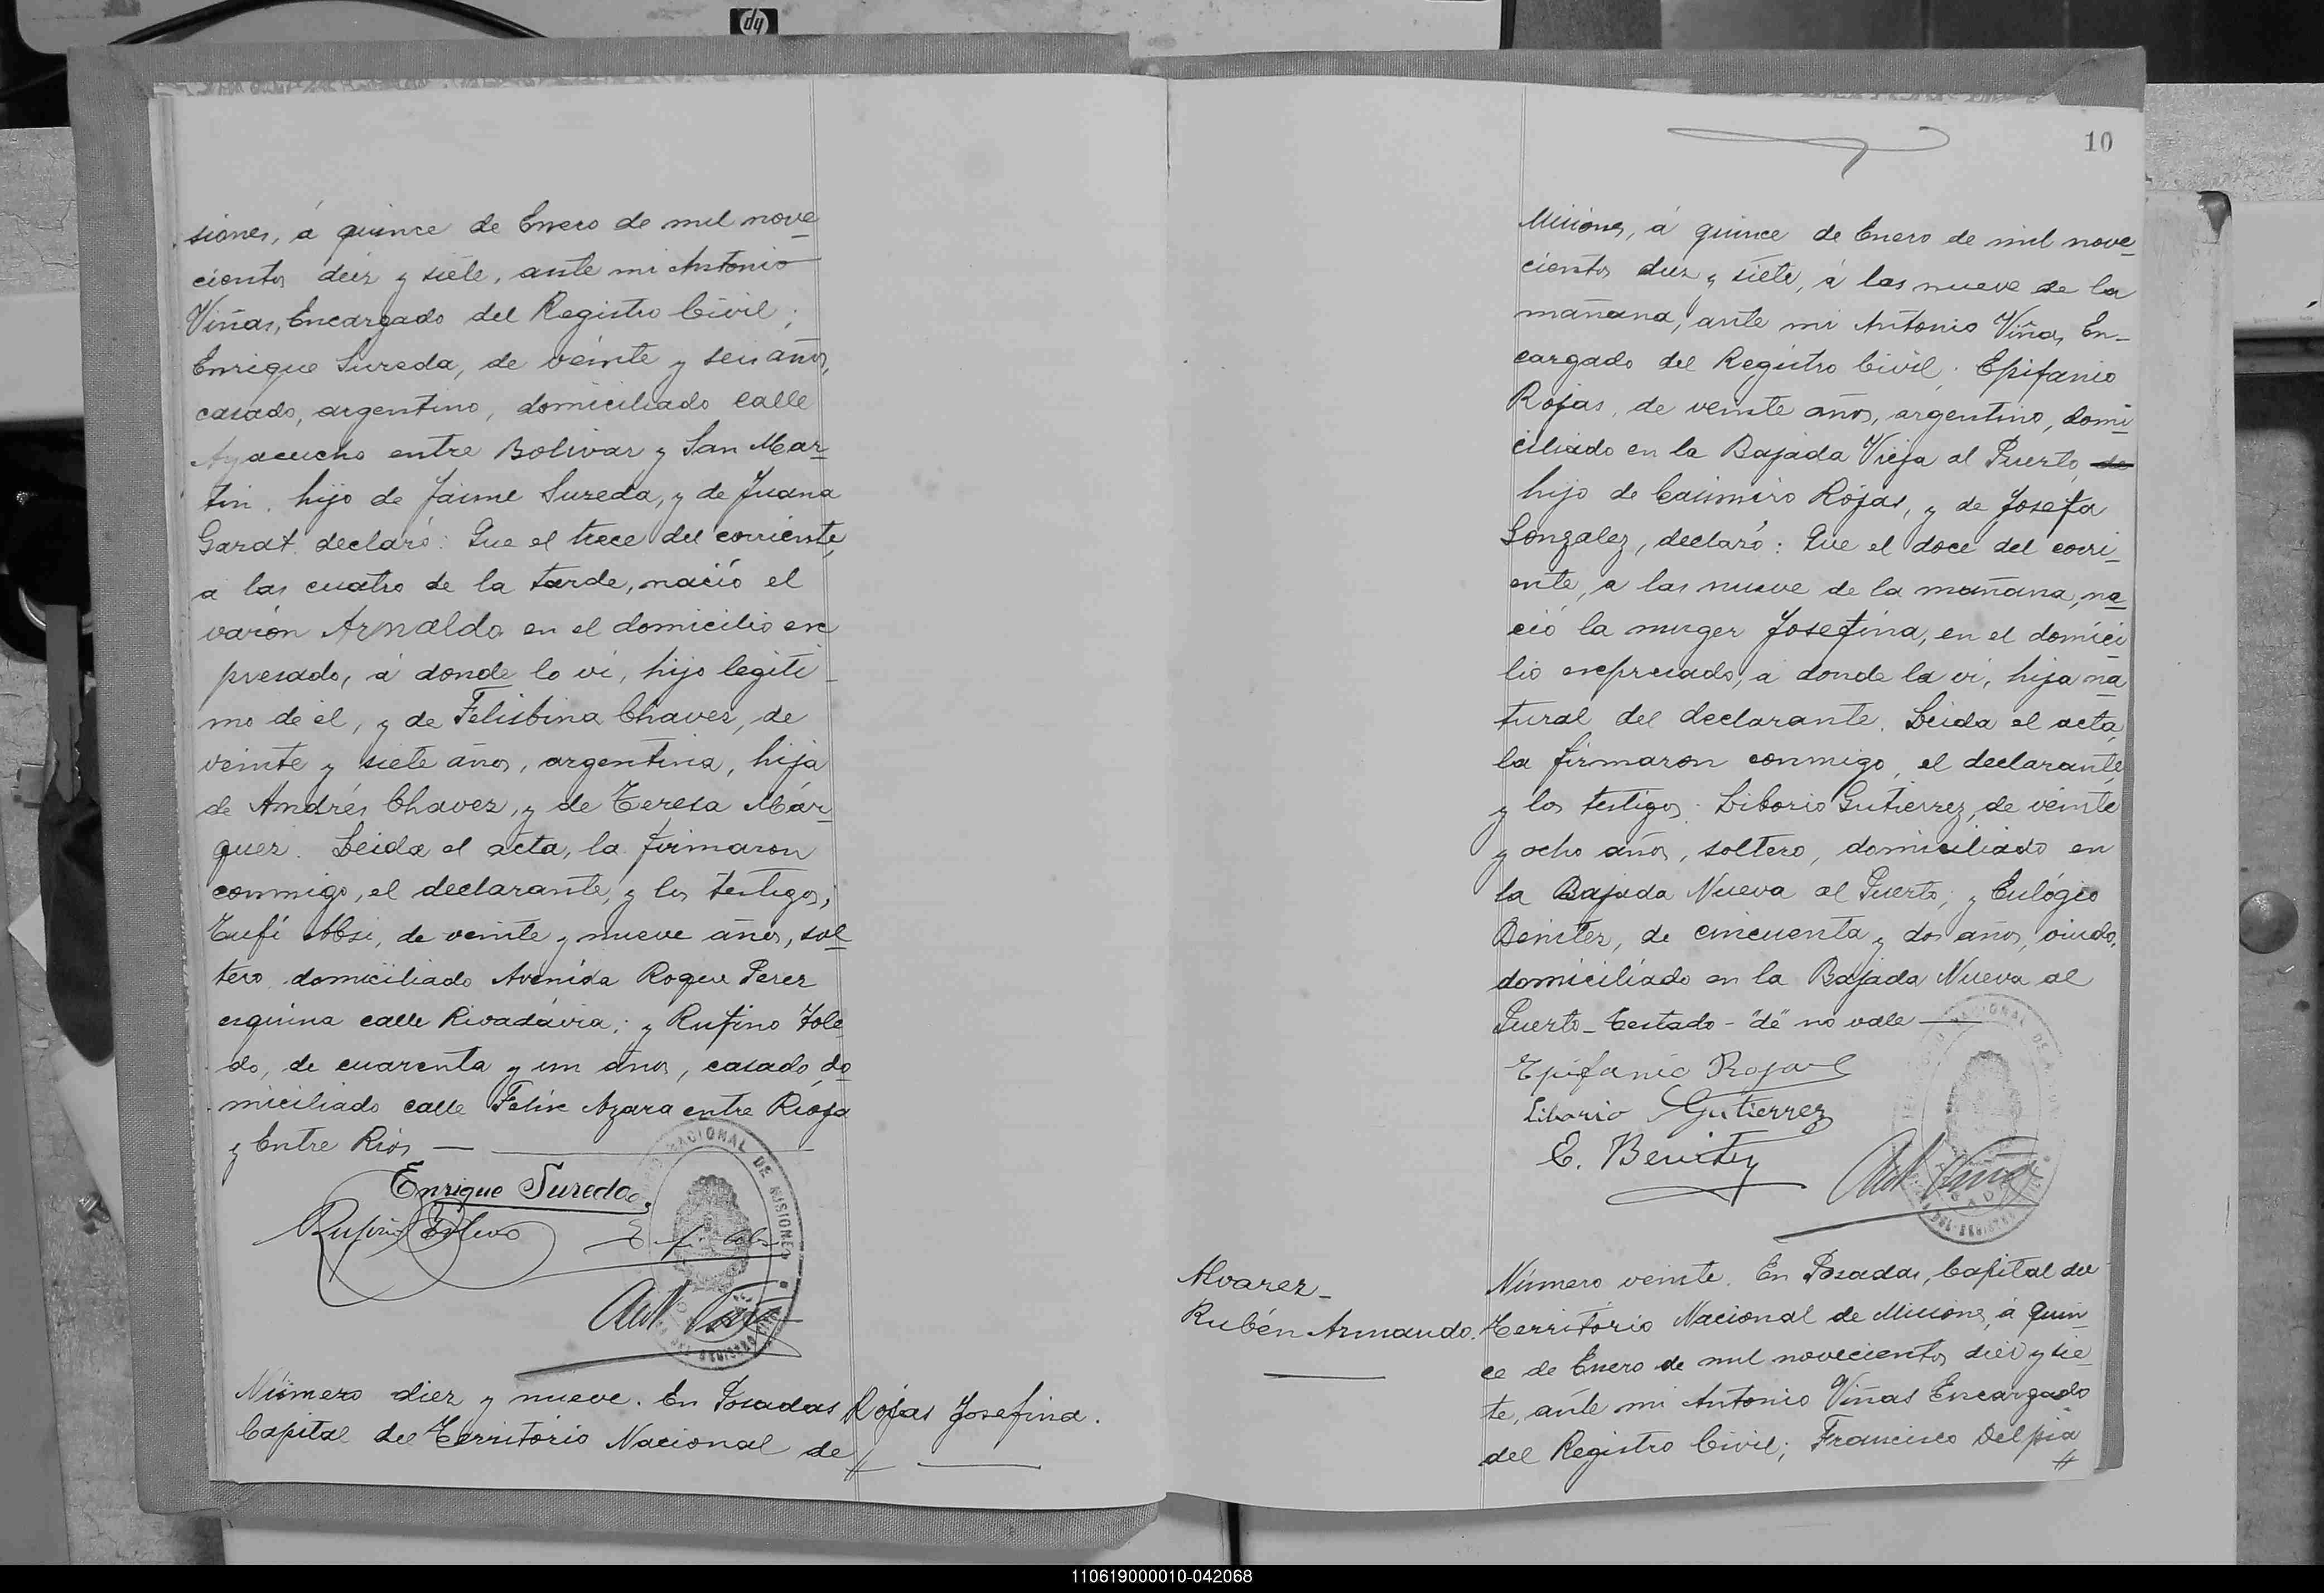 siones, á quince de Enero de mil nove
cientos deiz y siete, ante mi Antonio
Viñas, Encargado del Registro Civil;
Enrique Sureda, de veinte y seis años,
casado, argentino, domiciliado calle
Ayacucho entre Bolivar y San Mar
tin, hijo de Jaime Sureda, y de Juana
Garat, declaró: Que el trece del corriente,
a las cuatro de la tarde, nació el
varón Arnaldo en el domicilio ex
presado, á donde lo vi, hijo legiti
mo de él, y de Felisbina Chavez, de
veinte y siete años, argentina, hija
de Andrés Chavez, y de Teresa Már
quez. Leida el acta, la firmaron
conmigo, el declarante, y los testigos;
Tufi Absi, de veinte y nueve años, sol
tero, domiciliado Avenida Roque Perez
esquina calle Rivadávia; y Rufino Tole
do, de cuarenta y un años, casado, do
miciliado calle Felix Azara entre Rioja
y Entre Rios —
Enrique Sureda
Rufino Toledo
Ant Viñas
NACIONAL DE MISIONES
Número diez y nueve. En Posadas
Capital del Territorio Nacional de
Rojas Josefina.
10
Misiones, á quince de Enero de mil nove
cientos diez y siete, á las nueve de la
mañana, ante mi Antonio Viñas, En-
cargado del Registro Civil; Epifanio
Rojas, de veinte años, argentino, domi
ciliado en la Bajada Vieja al Puerto, de
hijo de Casimiro Rojas, y de Josefa
Gonzalez, declaró: Que el doce del corri
ente, a las nueve de la mañana, na
ció la muger Josefina, en el domici
lio expresado, á donde la vi, hija na
tural del declarante. Leida el acta,
la firmaron conmigo, el declarante,
y los testigos: Liborio Gutierrez, de veinte
y ocho años, soltero, domiciliado en
la Bajada Nueva al Puerto; y Eulógio
Benitez, de cincuenta y dos años, viudo,
domiciliado en la Bajada Nueva al
Puerto - Testado - "de" no vale —
Epifanio Rojas
Liborio Gutierrez
E. Benitez
Ant Viñas
Alvarez-
Rubén Armando.
Número veinte. En Posadas, Capital del
Territorio Nacional de Misiones, á quin
ce de Enero de mil novecientos diez y sie
te, ante mi Antonio Viñas Encargado
del Registro Civil; Francisco Delpia
110619000010-042068